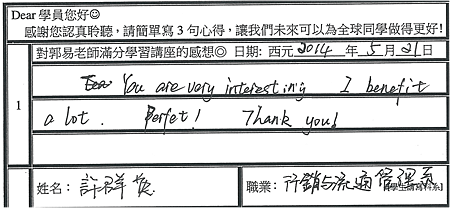 Dear 學員您好☺
感謝您認真聆聽，請簡單寫3句心得，讓我們未來可以為全球同學做得更好!
對郭易老師滿分學習講座的感想☺ 日期: 西元 2014 年 5 月 21 日
1
You are very interesting I benefit
a lot. Perfet! Thank you!
姓名: 許群
職業: 行銷与流通管理系 [學生請寫科系]